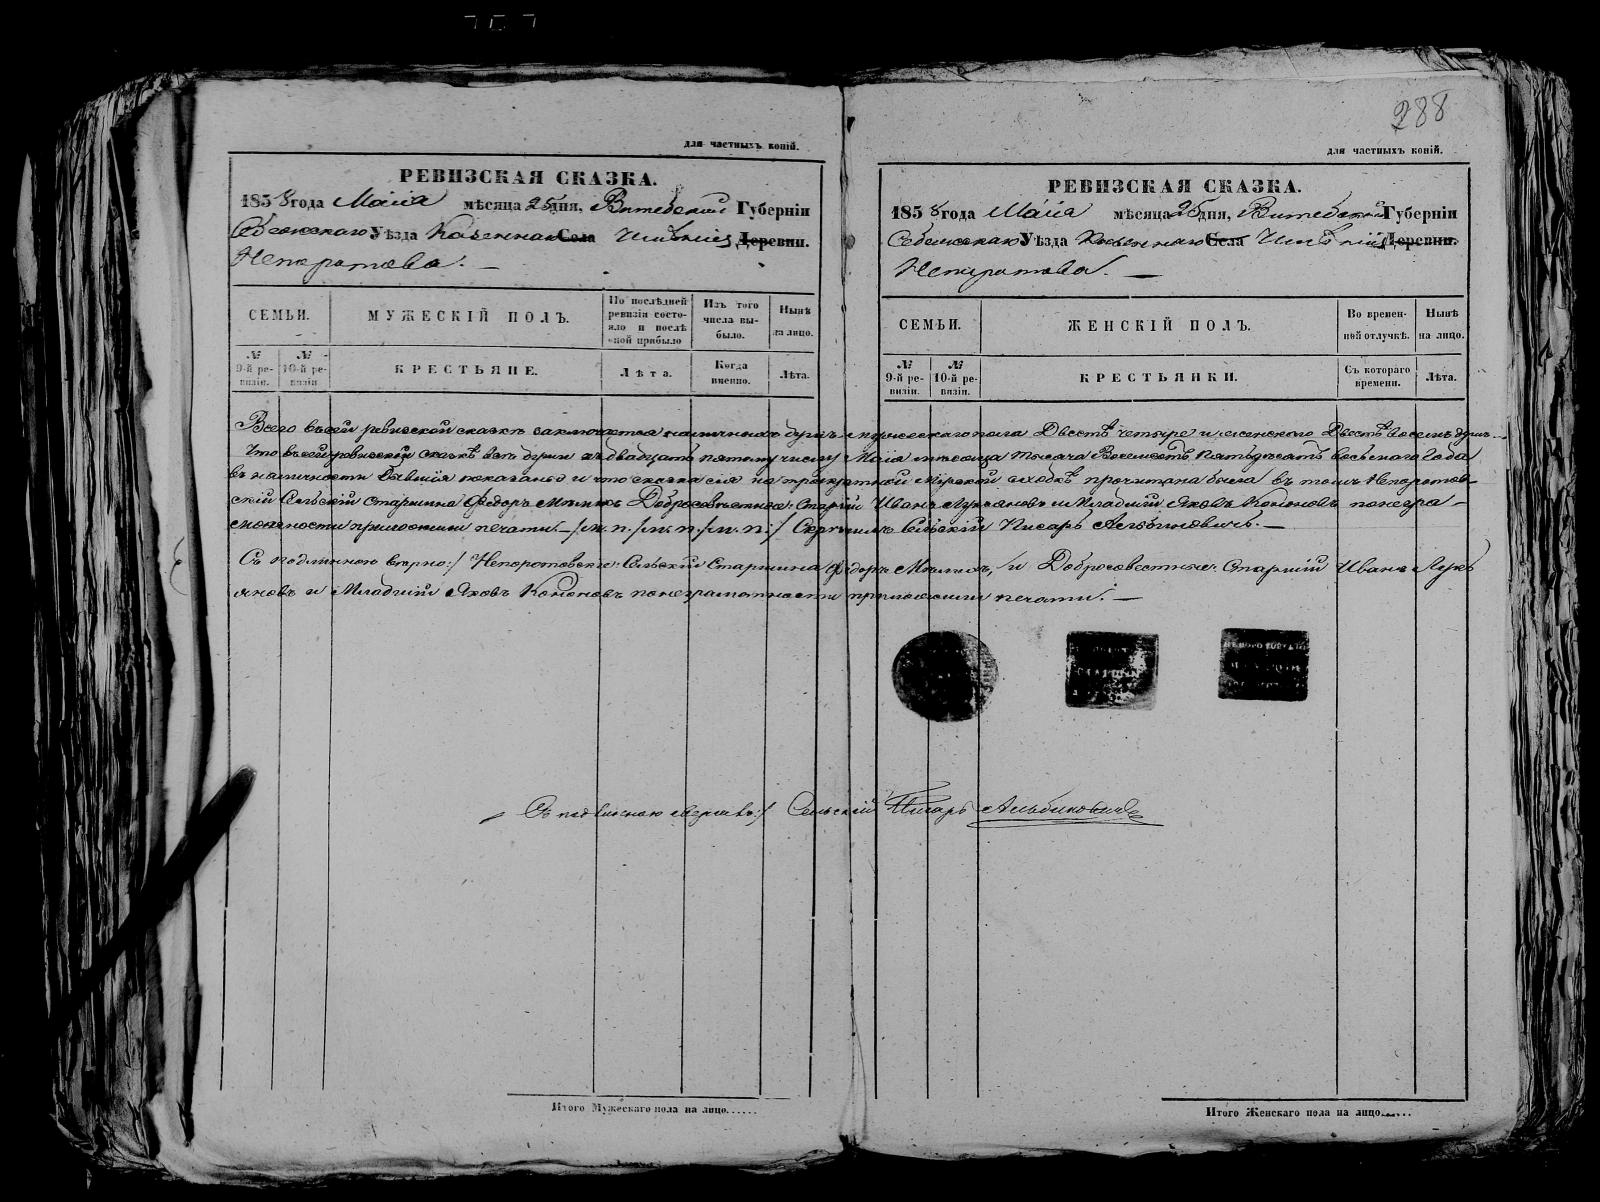 288
для частныхъ копій.
РЕВИЗСКАЯ СКАЗКА.
1858 года Маія мѣсяца 25 дня, Витебской Губерніи
Себежскаго Уѣзда Казеннаго Села Имѣнія Деревни.
Непоротова.
СЕМЬИ.
МУЖЕСКІЙ ПОЛЪ.
По послѣдней ревизіи состояло и послѣ оной прибыло
Изъ того числа выбыло.
Нынѣ на лицо.
№ 9-й ревизіи.
№ 10-й ревизіи
КРЕСТЬЯНЕ.
Лѣта.
Когда именно.
Лѣта.
для частныхъ копій.
РЕВИЗСКАЯ СКАЗКА.
1858 года Маія мѣсяца 25 дня, Витебской Губерніи
Себежскаго Уѣзда Казеннаго Села Имѣнія Деревни.
Непоротова.
СЕМЬИ.
ЖЕНСКІЙ ПОЛЪ.
Во временной отлучкѣ.
Нынѣ на лицо.
№ 9-й ревизіи.
№ 10-й ревизіи.
КРЕСТЬЯНКИ.
Съ котораго времени.
Лѣта.
Всего въ сей ревизской сказкѣ заключается наличныхъ душъ мужескаго пола Двѣстѣ четыре и женского Двѣстѣ восемь душъ
Что въ сей ревизской сказкѣ всѣ души къ двадцать пятому числу Маія мѣсяца тысяча Восемьсотъ Пятьдесятъ восьмого Года
въ наличности бывшія показаны и что сказка сія на троекратной Мірской сходкѣ прочитана была въ томъ Непоротов-
скій Сельскій Старшина Федоръ Добросовѣстные: Старшій Иванъ Лукьяновъ и Младшій Яковъ Кононовъ понегра-
мотности приложили печати. /м.п./м.п./м.п:/ Скрѣпилъ Сельскій Писарь Альбиновичъ.
Съ подлинною вѣрно:/ Непоротовскіе: Сельскій Старшина Федоръ и Добросовестные: Старшій Иванъ Лукь
яновъ и Младшій Яковъ Кононовъ понеграмотности приложили печати.
Съ подлинною сверялъ:/ Сельскій Писарь Альбиновичъ
Итого Мужескаго пола на лицо......
Итого Женскаго пола на лицо......